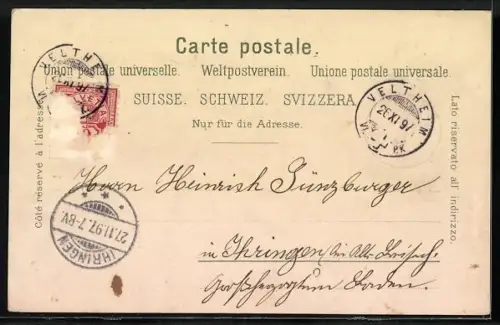 Carte postale.
Union postale universelle. Weltpostverein. Unione postale universale.
SUISSE. SCHWEIZ. SVIZZERA.
Nur für die Adresse.
Côté réservé à l'adresse.
Lato riservato all' indirizzo.
VELTHEIM
VELTHEIM
26 XI 97
27.XI.97.7-8V.
IHRINGEN
Herrn Heinrich Günzburger
in Ihringen bei Alt Breisach
Großherzogtum Baden.